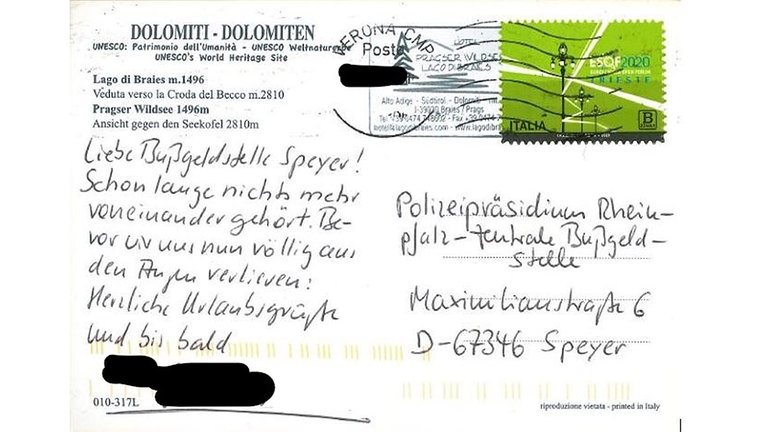 DOLOMITI - DOLOMITEN
UNESCO: Patrimonio dell'Umanità - UNESCO Weltnaturerbe
UNESCO's World Heritage Site
Lago di Braies m.1496
Veduta verso la Croda del Becco m.2810
Pragser Wildsee 1496m
Ansicht gegen den Seekofel 2810m
VERONA CMP
Poste
HOTEL
PRAGSER WILDSEE
LAGO DI BRAIES
Alto Adige - Südtirol - Dolomiti
I-39030 Braies / Prags
ESOF2020
TRIESTE
ITALIA
B
Liebe Bußgeldstelle Speyer!
Schon lange nichts mehr
voneinander gehört. Be-
vor wir uns nun völlig aus
den Augen verlieren:
Herzliche Urlaubsgrüße
und bis bald
Polizeipräsidium Rhein-
pfalz - Zentrale Bußgeld-
stelle
Maximilianstraße 6
D-67346 Speyer
010-317L
riproduzione vietata - printed in Italy